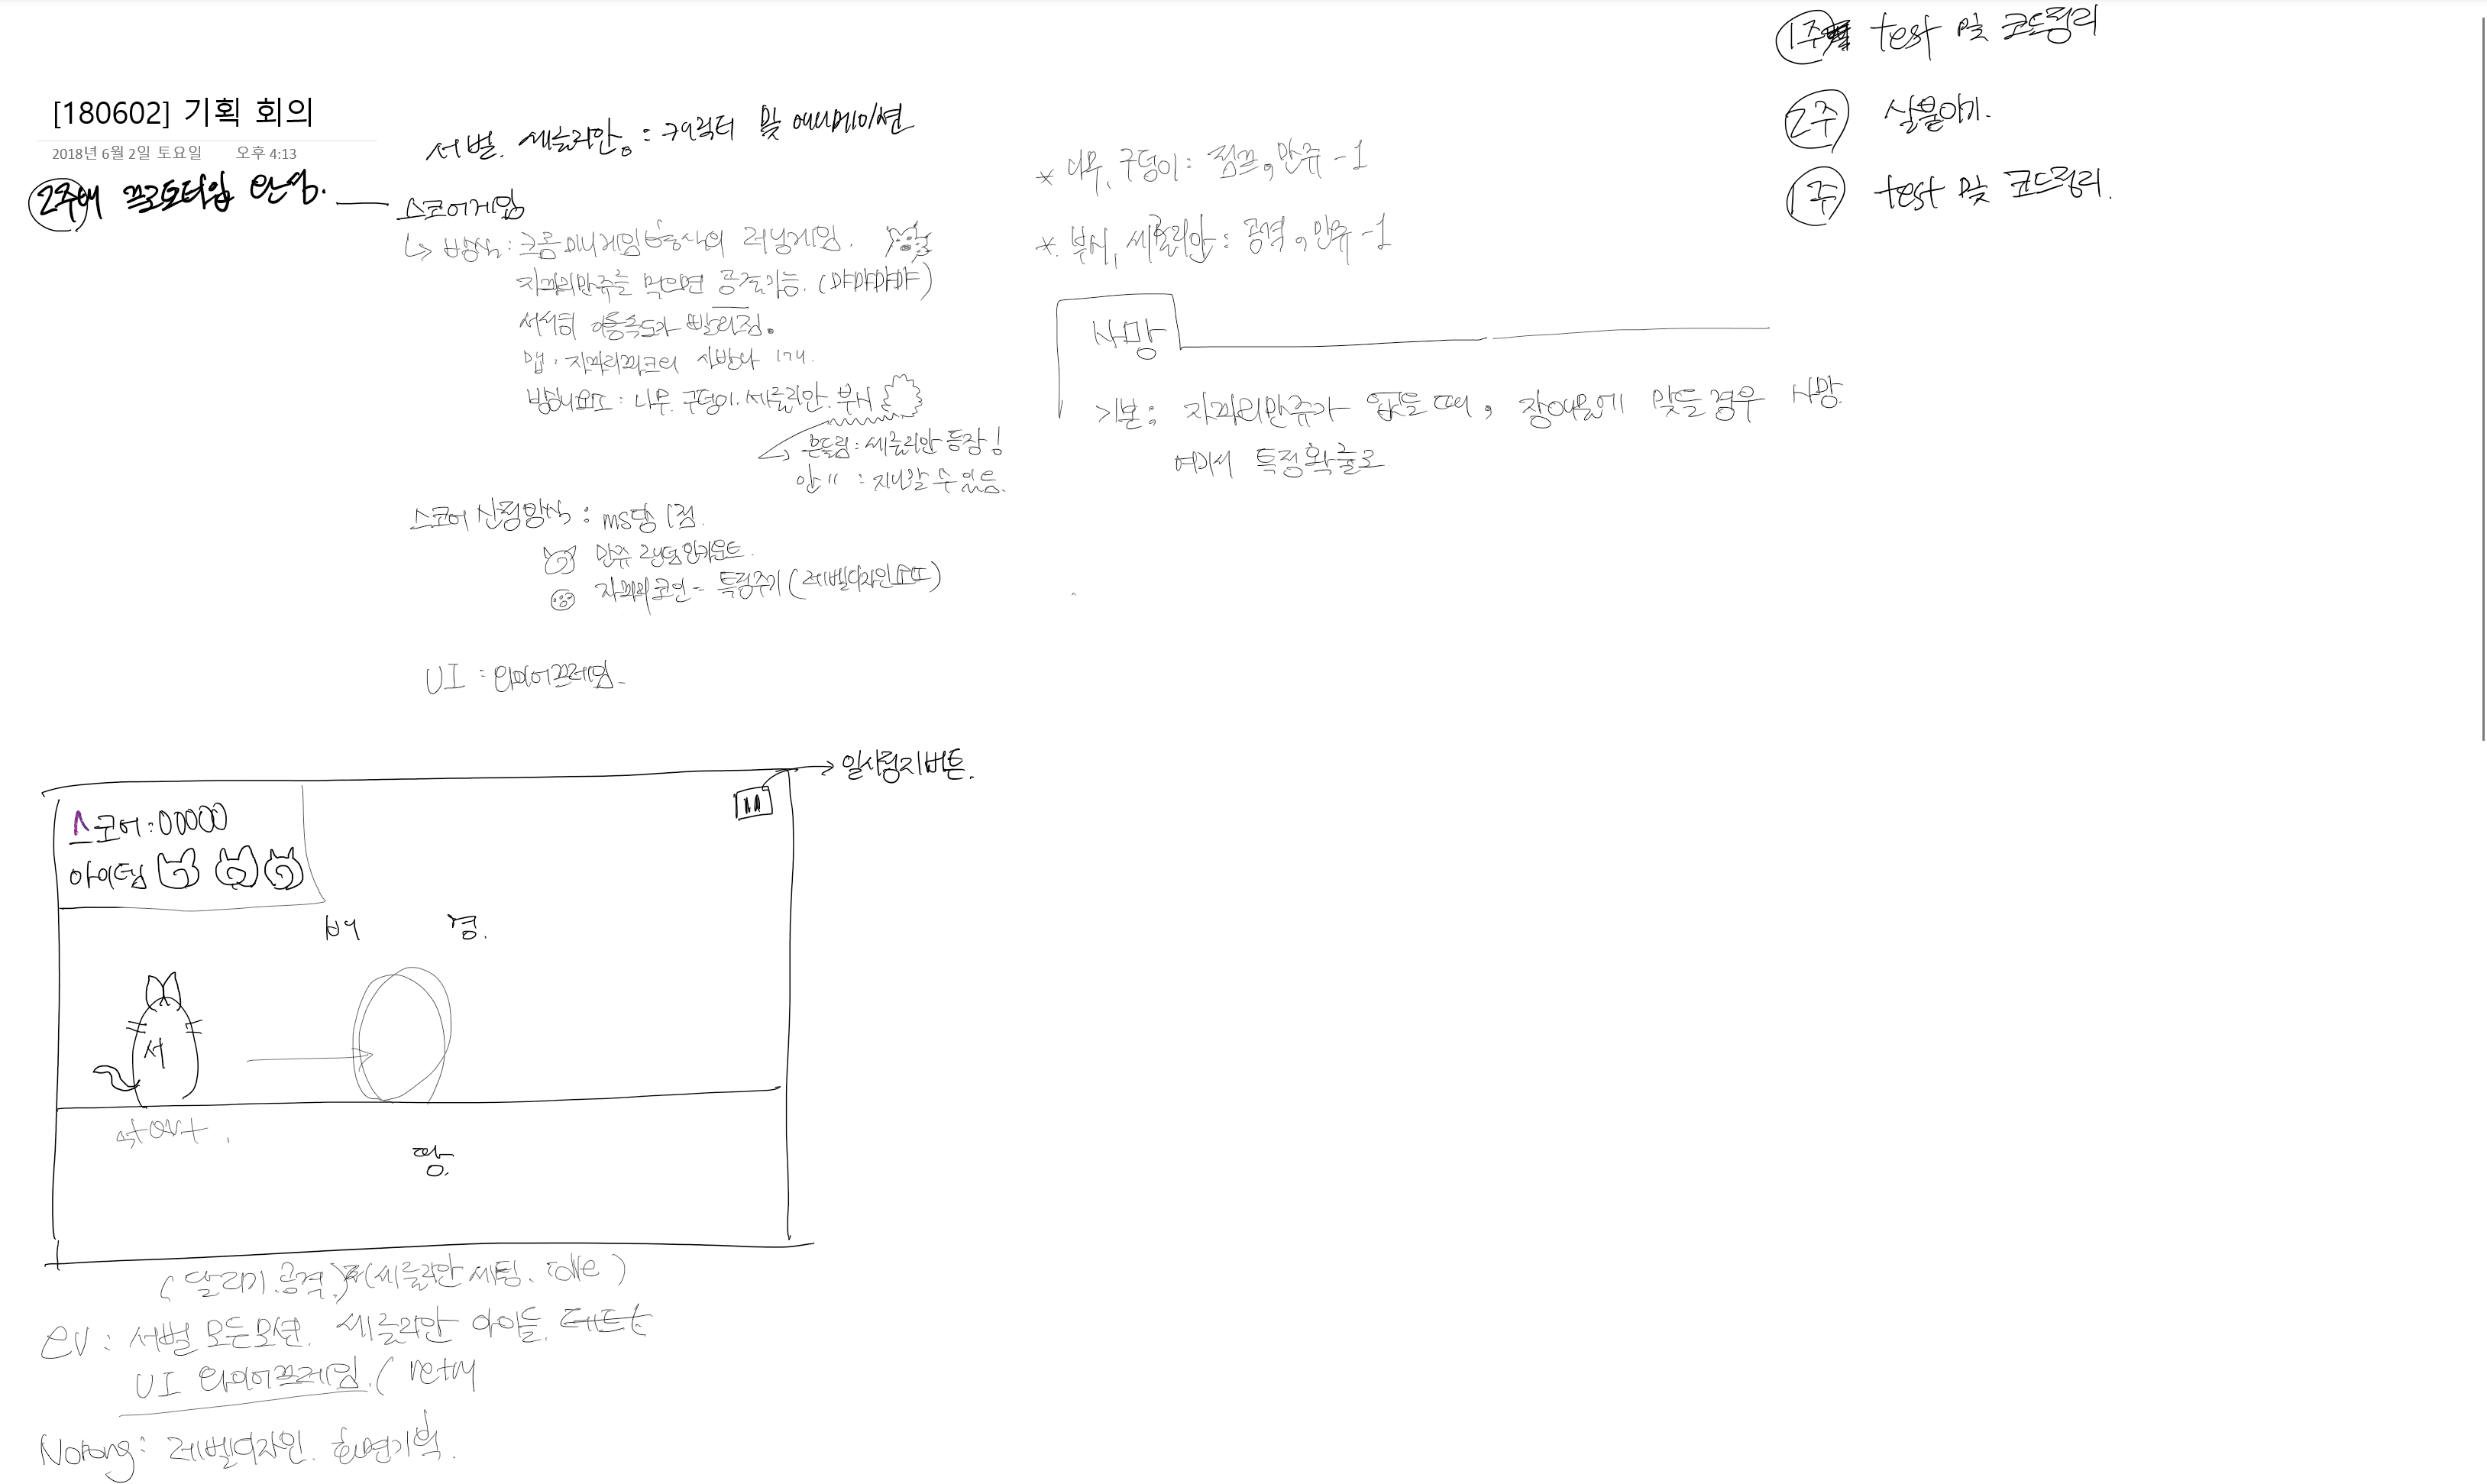 [180602] 기획 회의
2018년 6월 2일 토요일 오후 4:13
2주에 프로토타입 완성.
서벌. 세룰리안 : 캐릭터 및 애니메이션
스코어게임
↳ 방식 : 크롬 미니게임 방식의 러닝게임.
자파리만쥬를 먹으면 공격가능. (먀먀먀먀)
서서히 이동속도가 빨라짐.
맵 : 자파리파크의 사바나 1개.
방해요소 : 나무. 구덩이. 세룰리안. 부시
흔들림 : 세룰리안 등장!
안 〃 : 지나갈 수 있음.
스코어 산정방식 : ms당 1점.
만쥬 랜덤인카운트.
자파리코인 = 특정주기 (레벨디자인요또)
UI : 와이어프레임.
* 나무, 구덩이 : 점프, 만쥬 -1
* 부시, 세룰리안 : 공격, 만쥬 -1
사망
기본 : 자파리만쥬가 없을 때, 장애물에 맞을 경우 사망
여기서 특정확률로
1주 test 및 코드정리
2주 살붙이기.
1주 test 및 코드정리.
→ 일시정지버튼.
스코어 : 00000
아이템
배 경.
서
start.
땅.
(달리기. 공격.) (세룰리안 세팅. idle)
ev : 서벌 모든모션. 세룰리안 아이들.
UI 와이어프레임. ( retry
Norong : 레벨디자인. 화면기획.